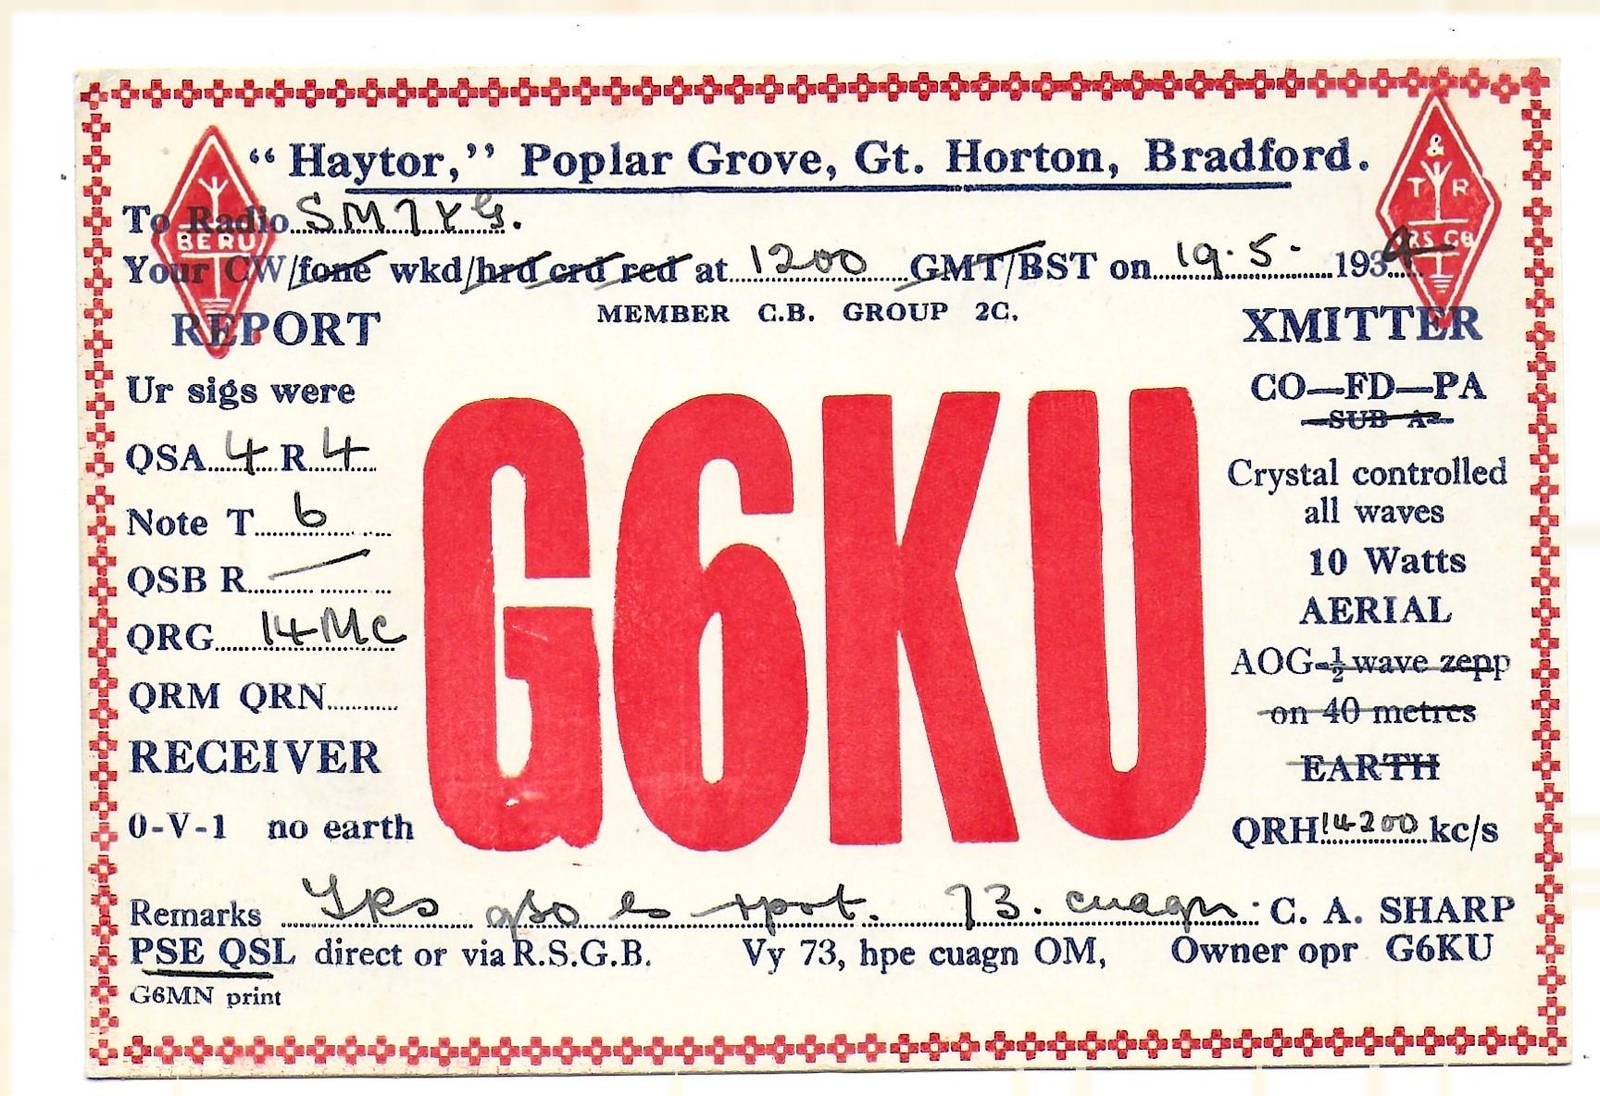 "Haytor," Poplar Grove, Gt. Horton, Bradford.
BERU
& T R
RSGB
To Radio SM7YG.
Your CW/fone wkd/hrd crd red at 1200 GMT/BST on 19.5. 1934
MEMBER C.B. GROUP 2C.
REPORT
Ur sigs were
QSA 4 R 4
Note T 6
QSB R —
QRG 14 Mc
QRM QRN
RECEIVER
0-V-1 no earth
G6KU
XMITTER
CO—FD—PA
SUB A
Crystal controlled
all waves
10 Watts
AERIAL
AOG-½ wave zepp
on 40 metres
EARTH
QRH 14200 kc/s
Remarks Tks qso es rprt. 73. cuagn. C. A. SHARP
PSE QSL direct or via R.S.G.B. Vy 73, hpe cuagn OM, Owner opr G6KU
G6MN print